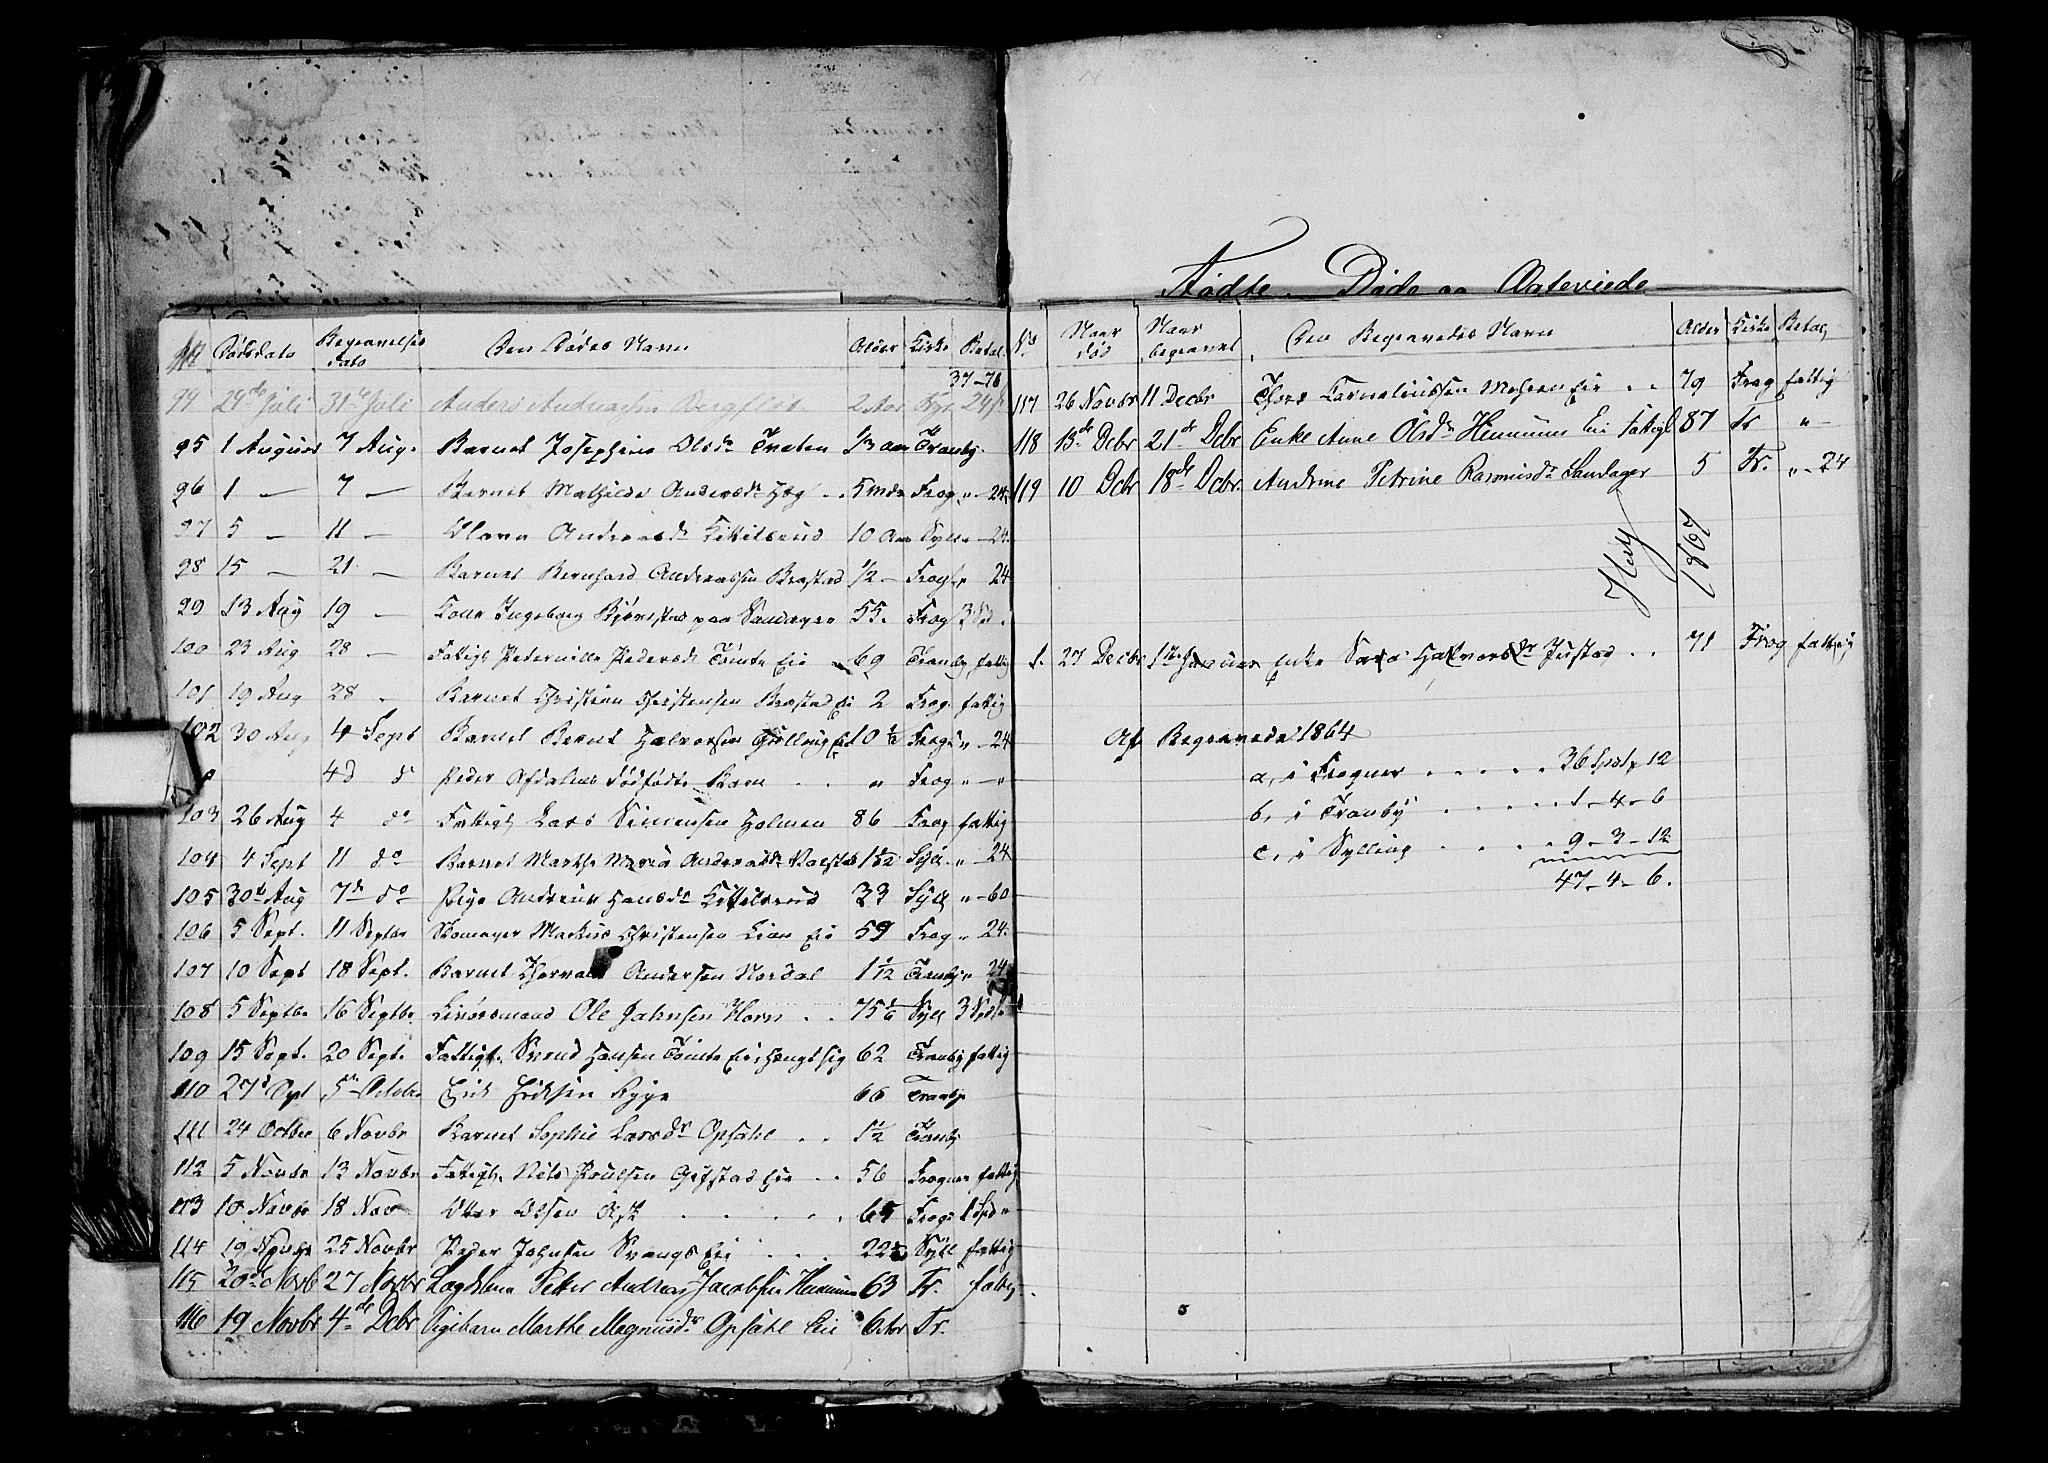 No Dödsdato Begravelses Dato Den Dödes Navn Alder Kirke Betal.
37-76
94 24de Juli 31te Juli Anders Andreasen 2 Aar Syl 24
95 1 August 7 Aug. Barnet Josephine Olsdr Traten 1/3 aar Tranby.
96 1 — 7 — Barnet Mathilde Andersdr 5 Mdr Frog „ 24
97 5 — 11 — Maren Andersdr Kittilsrud 10 Aar Syll „ 24.
98 15 — 21 — Barnet Bernhard Andreassen Brastad 1/2 — Frog „ 24
99 13 Aug 19 — Kone Ingeborg Bjørnstad paa Sandager 55. Frog 3 Spd.
100 23 Aug 28 — Fattigl Pedernille Pedersdr Tömte Eie 69 Tranby fattig
101 19 Aug 28 - Barnet Christian Christensen Brastad Ei 2 Frog. fattig
102 30 Aug 4 Sept Barnet Bernt Halvorsen Gulling 10 Frog „ - 24
4 d d Peder dödfödte Barn . . „ Frog „ — „
103 26 Aug 4 do Fattigl Lars Simensen Holmen 86 Frog fattig
104 4 Sept 11 do Barnet Marthe Maria Andersdr 1 1/2 Syll. „ - 24
105 30te Aug 7de do Pige Andrine Hansdr Kittilsrud 33 Syll „ - 60
106 5 Sept. 11 Septbr Skomager Markus Christensen Lien Eie 59 Frog „ 24.
107 10 Sept 18 Sept. Barnet Thorvald Andersen Nordal 1 1/2 Tranby „ 24
108 5 Septbr 16 Septbr Ole Jahnsen Horn . . 75 Syll 3 Spd
109 15 Sept. 20 Sept. Fattigl. Svend Hansen Tömte Eie, hængt sig 62 Tranby fattig
110 27 Sept 5te Octobr Erik Eriksen Rygg 66 Tranby
111 24 Octbr 6 Novbr Barnet Sophie Larsdr Opsahl . . 1 1/2 Tranby
112 5 Novbr 13 Novbr Fattigl. Nils Poulsen Gifstad Eie . . 56 Frogner fattig
113 10 Novbr 18 Nov Otter Olsen . . . . 65 Frog 1 Spd „
114 19 Novbr 25 Novbr Peder Johnsen Svangs Eie . . . 22 Syll fattig
115 20de Novb 27 Novbr Peter Andreas Jacobsen Hennum 63 Tr. fattig
116 19 Novbr 4de Dcbr Pigebarn Marthe Magnusdr Opsahl Eie 6 Aar Tr.
Födte. Döde og Ægteviede
No Naar död Naar begravet Den Begravedes Navn Alder Kirke Betal,
117 26 Novbr 11 Decbr Thor Corneliussen Eie . . 79 Frog fattig
118 13de Dcbr 21de Dcbr Enke Anne Olsdr Hennums Eie Fattigl 87 Tr „ -
119 10 Dcbr 18de Dcbr. Andrine Petrine Rasmusdr Sandager 5 Tr. „ - 24
1. 27 Decbr 1ste Januar Enke Sara Halvorsdr Justad . . 71 Frog fattig
Af Begravede 1864
a, i Frogner . . . . . 36 Spd 4 12
b, i Tranby . . . . . 1 - 4 - 6
c, i Sylling . . . . . 9 - 3 - 12
47 - 4 - 6.